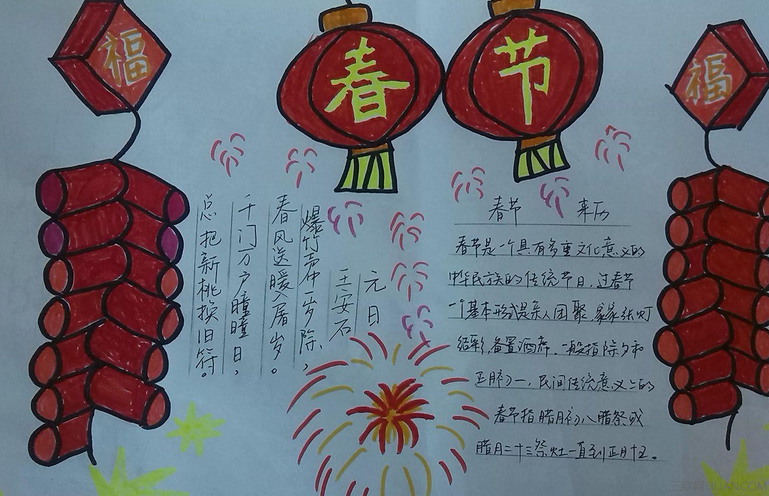 福
春节
福
元日
王安石
爆竹声中岁除，
春风送暖入屠岁。
千门万户瞳瞳日，
总把新桃换旧符。
春节 来历
春节是一个具有多重文化意义的
中华民族的传统节日，过春节
一个基本形式是亲人团聚 家家张灯
结彩，备置酒席，一般指除夕和
正月初一，民间传统意义上的
春节指腊月初八腊祭或
腊月二十三祭灶一直到正月十五。